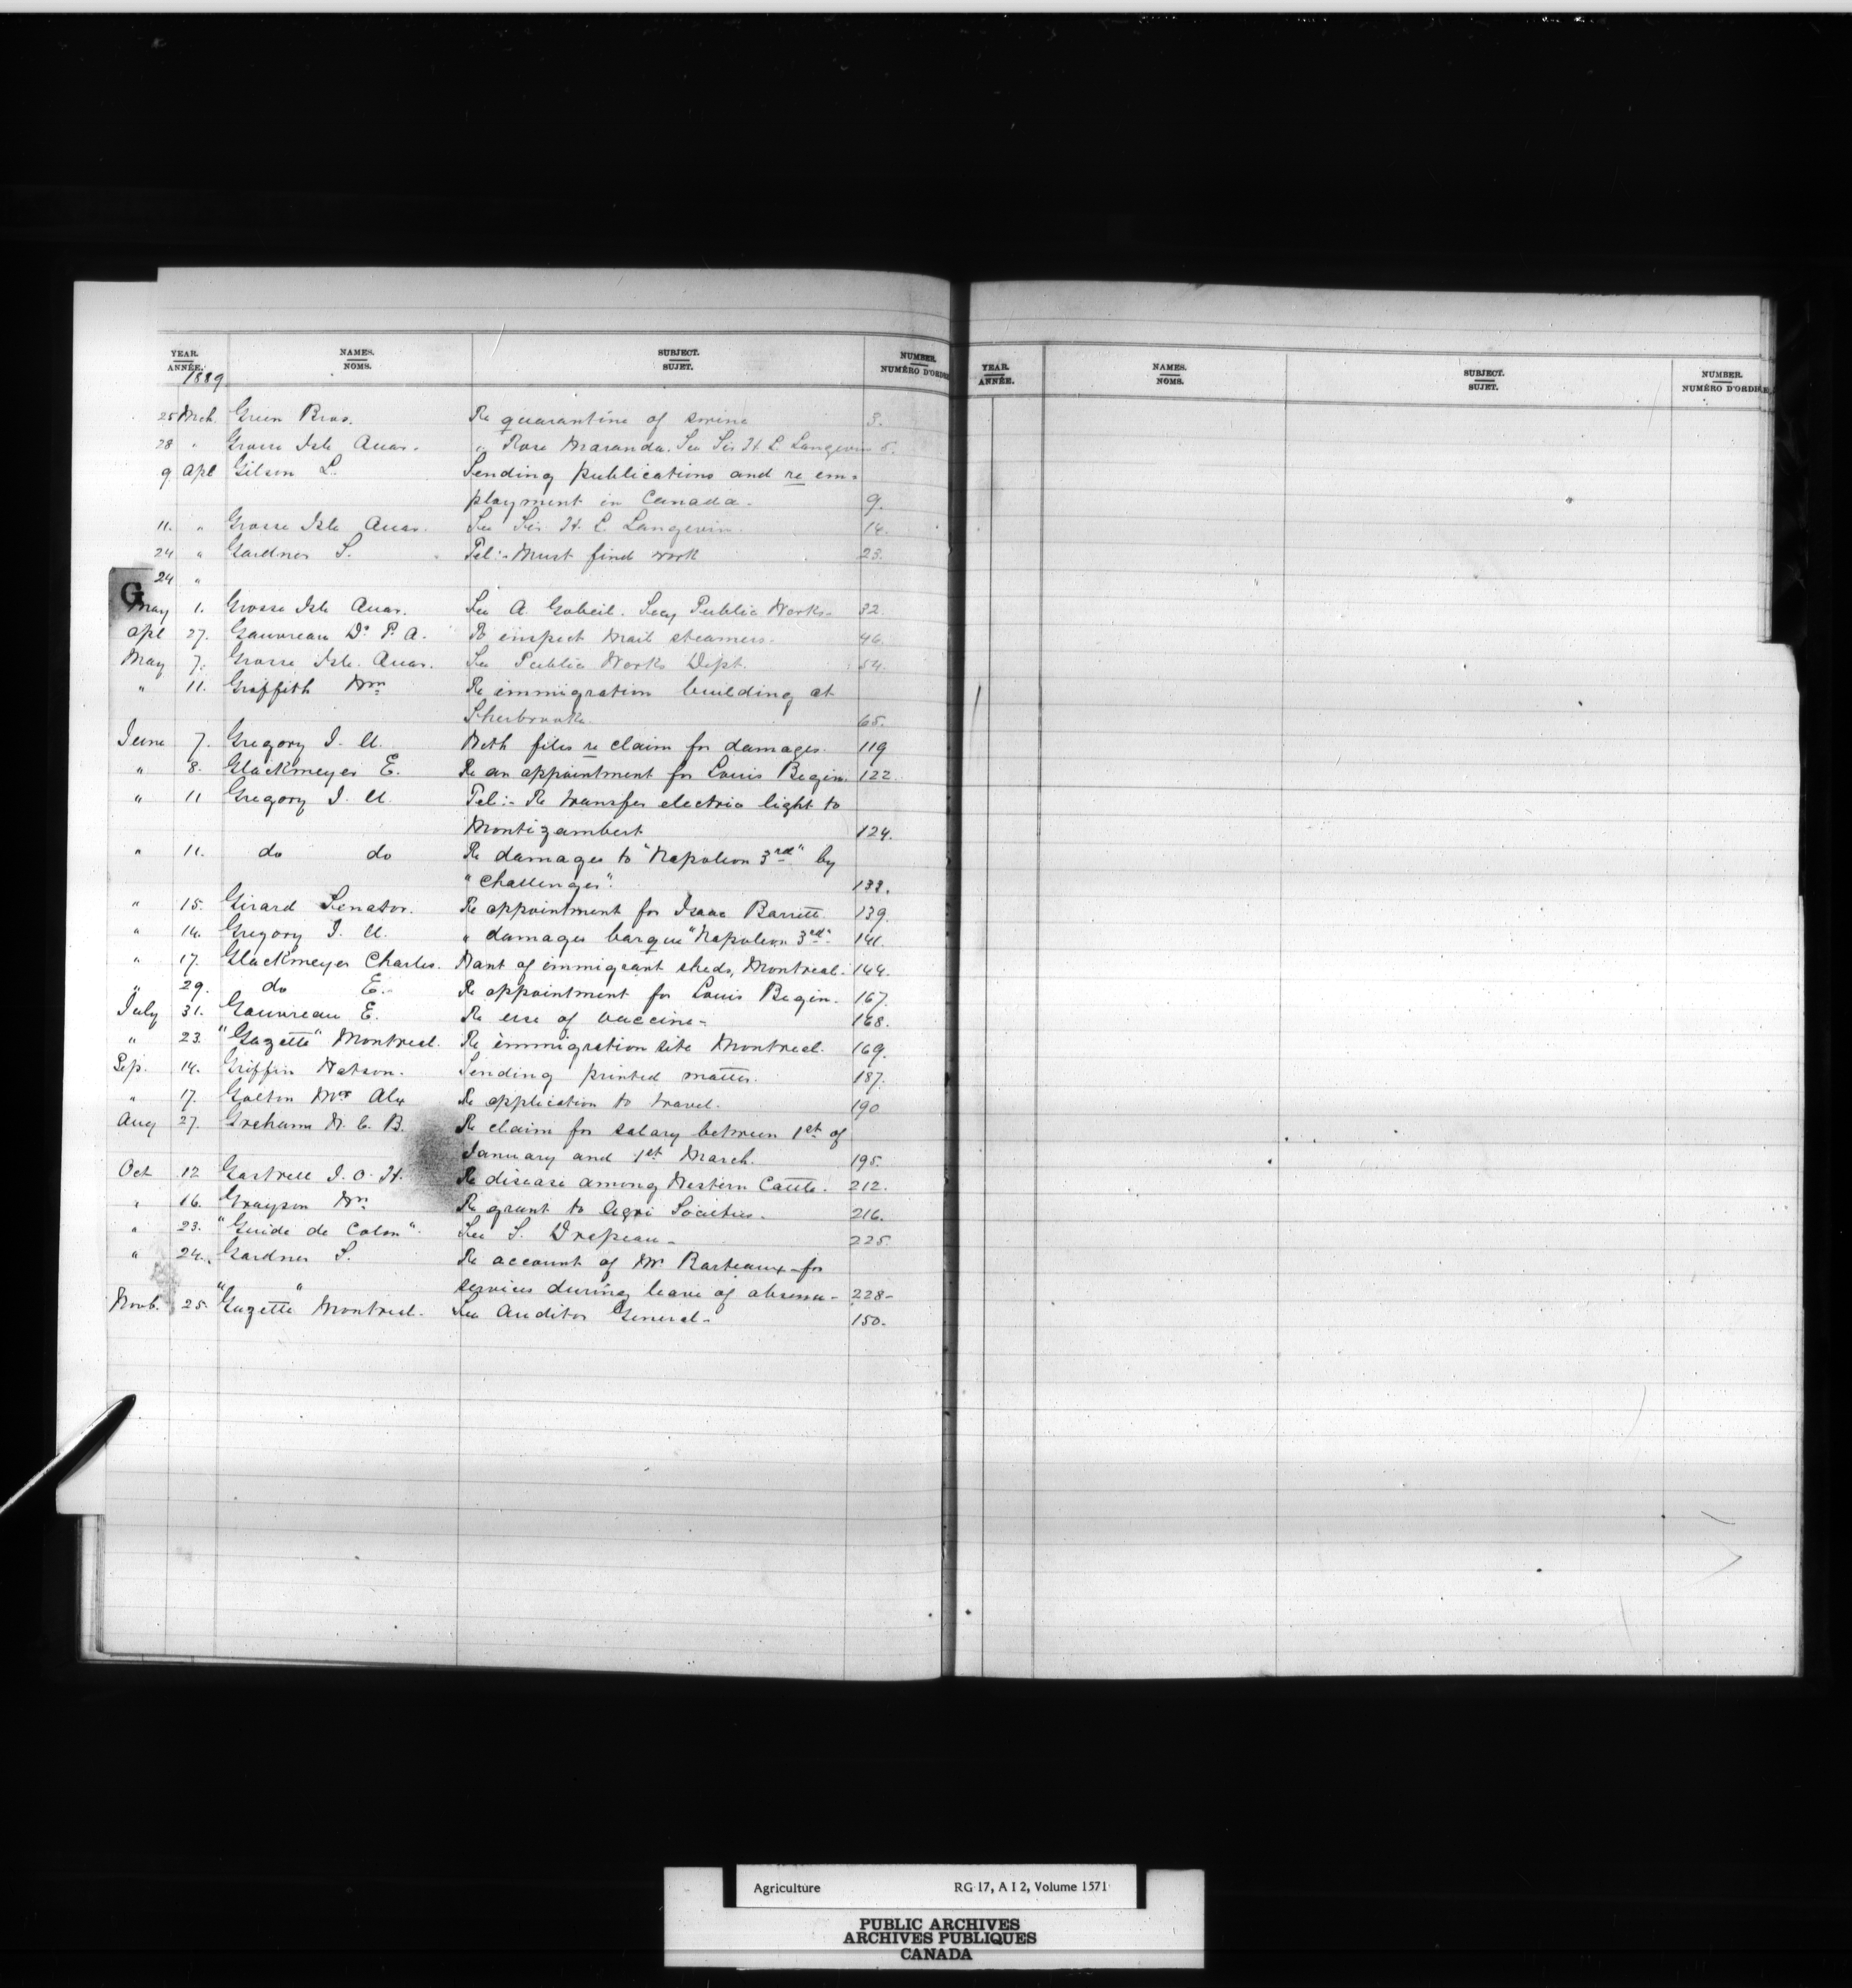 YEAR. NAMES. SUBJECT. NUMBER.
ANNÉE. NOMS. SUJET. NUMÉRO D'ORDRE
1889
25 Mch. Green Bros. Re quarantine of swine 3.
28 " Grosse Isle Quar. " Rose Maranda. See Sir H. L. Langevin 5.
9 Apl Gilson L. Sending publications and re em=
ployment in Canada. 9.
11. " Grosse Isle Quar. See Sir H. L. Langevin. 14.
24 " Gardner S. Tel:- Must find work 23.
24 "
G
May 1. Grosse Isle Quar. See A. Gobeil. Secy Public Works. 32.
Apl 27. Gauvreau Dr. P. A. To inspect Mail steamers. 46.
May 7. Grosse Isle. Quar. See Public Works Dept. 54.
" 11. Griffith Wm Re immigration building at
Sherbrooke. 65.
June 7. Gregory J. U. With files re claim for damages. 119
" 8. Glackmeyer E. Re an appointment for Louis Begin. 122.
" 11 Gregory J. U. Tel:- Re transfer electric light to
Montizambert 124.
" 11. do do Re damages to "Napoleon 3rd" by
"Challenger". 133.
" 15. Girard Senator. Re appointment for Isaac Barrett. 139.
" 14. Gregory J. U. " damages barque "Napoleon 3rd" 141.
" 17. Glackmeyer Charles. Want of immigrant sheds, Montreal. 144.
" 29. do E. Re appointment for Louis Begin. 167.
July 31. Gauvreau E. Re use of vaccine- 168.
" 23. "Gazette" Montreal. Re immigration site Montreal. 169.
Sep. 14. Griffin Watson. Sending printed matter. 187.
" 17. Galton Mrs Alex Re application to travel. 190
Aug 27. Graham W. C. B. Re claim for salary between 1st of
January and 1st March. 195.
Oct 12 Gastrell J. O. H. Re disease among Western Cattle. 212.
" 16. Grayson Wm Re grant to Agri Societies. 216.
" 23. "Guide de Colon". See S. Drapeau- 225
" 24. Gardner S. Re account of Mr. Barteaux for
services during leave of absence- 228-
Novb. 25. "Gazette" Montreal. See Auditor General- 150.
YEAR. NAMES. SUBJECT. NUMBER.
ANNÉE. NOMS. SUJET. NUMÉRO D'ORDRE
Agriculture RG 17, A I 2, Volume 1571
PUBLIC ARCHIVES
ARCHIVES PUBLIQUES
CANADA